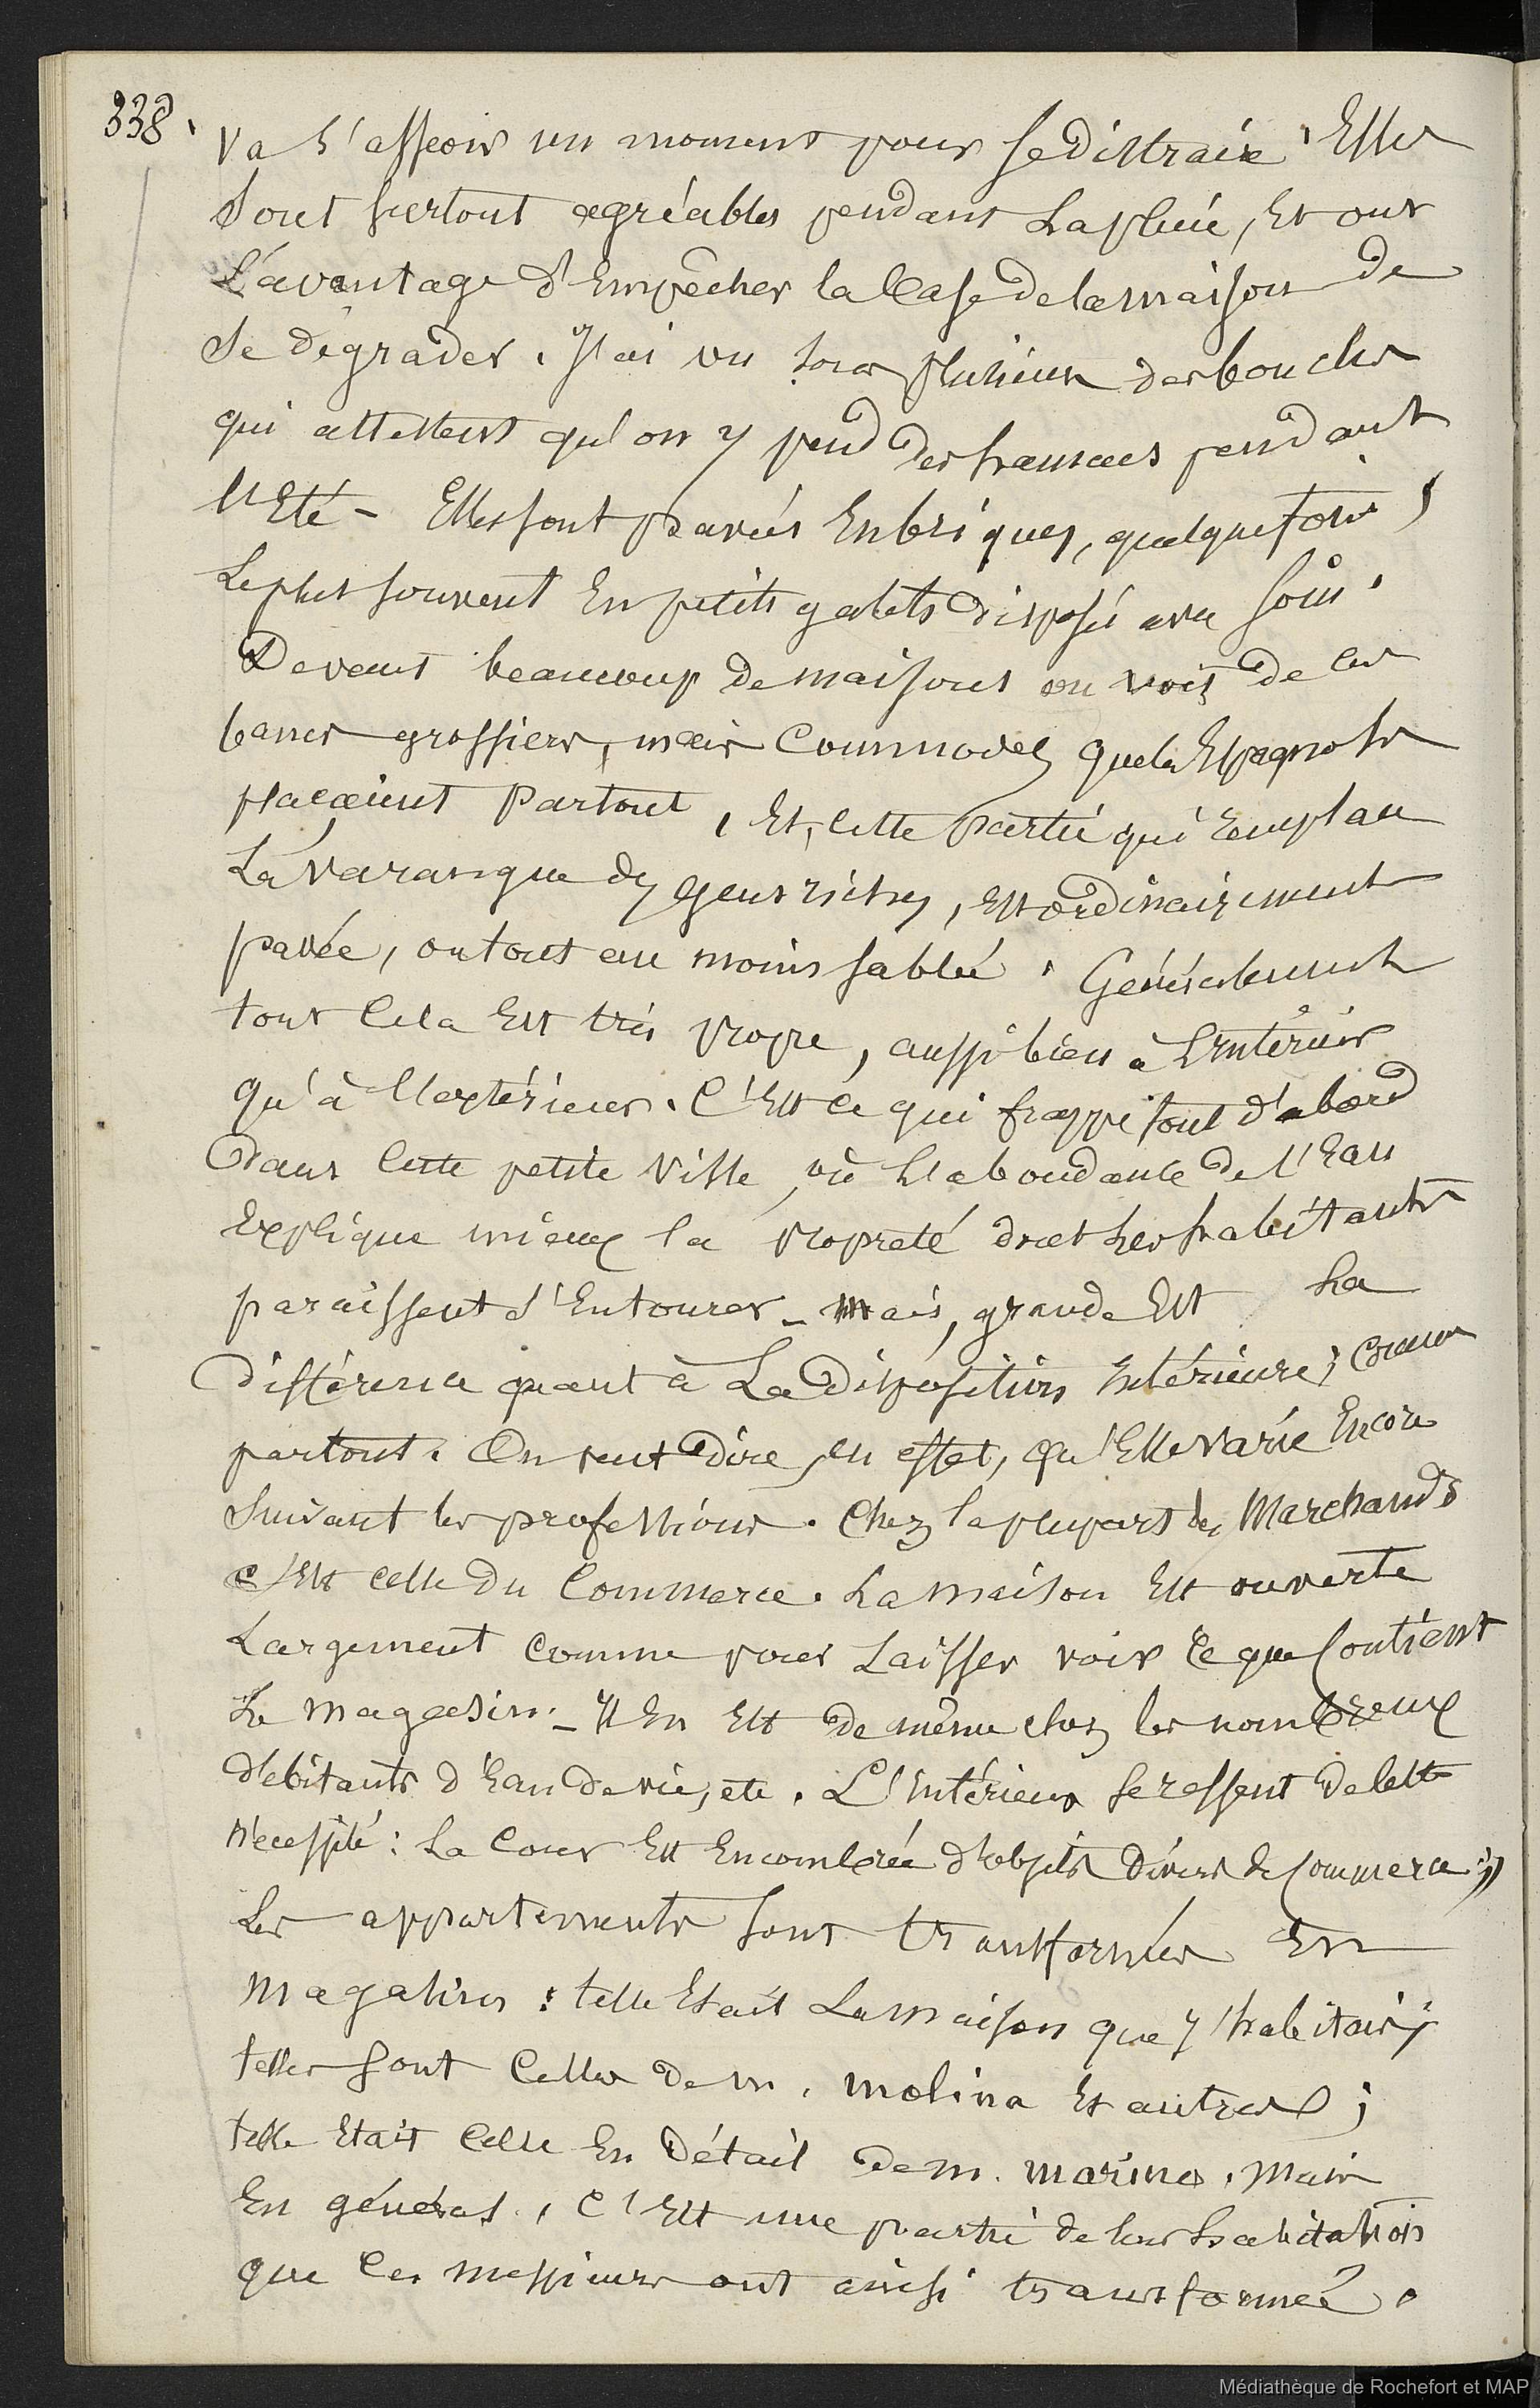 338.
va s'asseoir un moment pour se distraire. Elles
sont surtout agréables pendant la pluie, Et ont
l'avantage d'Empêcher la base de la maison de
se dégrader. J'ai vu sous plusieurs des boucles
qui attestent qu'on y pend des hamacs pendant
l'Eté - Elles sont pavées En briques, quelquefois,
Le plus souvent En petits galets disposés avec soin.
Devant beaucoup de maisons on voit de ces
bancs grossiers, mais commodes que les Espagnols
plaçaient partout, Et, cette partie qui remplace
La varangue des gens riches, Est ordinairement
pavée, ou tout au moins sablée. Généralement
tout cela Est très propre, aussi bien à l'intérieur
qu'à l'extérieur. C'Est ce qui frappe tout d'abord
Dans cette petite ville, où l'abondance de l'Eau
Explique mieux la propreté dont les habitants
paraissent s'Entourer - mais, grande Est la
différence quant à La disposition intérieure, comme
partout. On peut dire, en effet, qu'Elle varie Encore
suivant les professions. Chez la plupart des Marchands
c'Est celle du Commerce. La maison Est ouverte
Largement comme pour Laisser voir ce que contient
Le magasin. - Il En Est de même chez les nombreux
débitants d'Eau de vie, etc. L'intérieur se ressent de cette
nécessité : La cour Est Encombrée d'objets divers de commerce ;
Les appartements sont transformés En
magasins : telle Etait La maison que j'habitais ;
telles sont celles de M. Molina Et autres ;
telle Etait celle En Détail de M. Marino. Mais
En général, c'Est une partie de leur habitation
que ces messieurs ont ainsi transformée.
Médiathèque de Rochefort et MAP